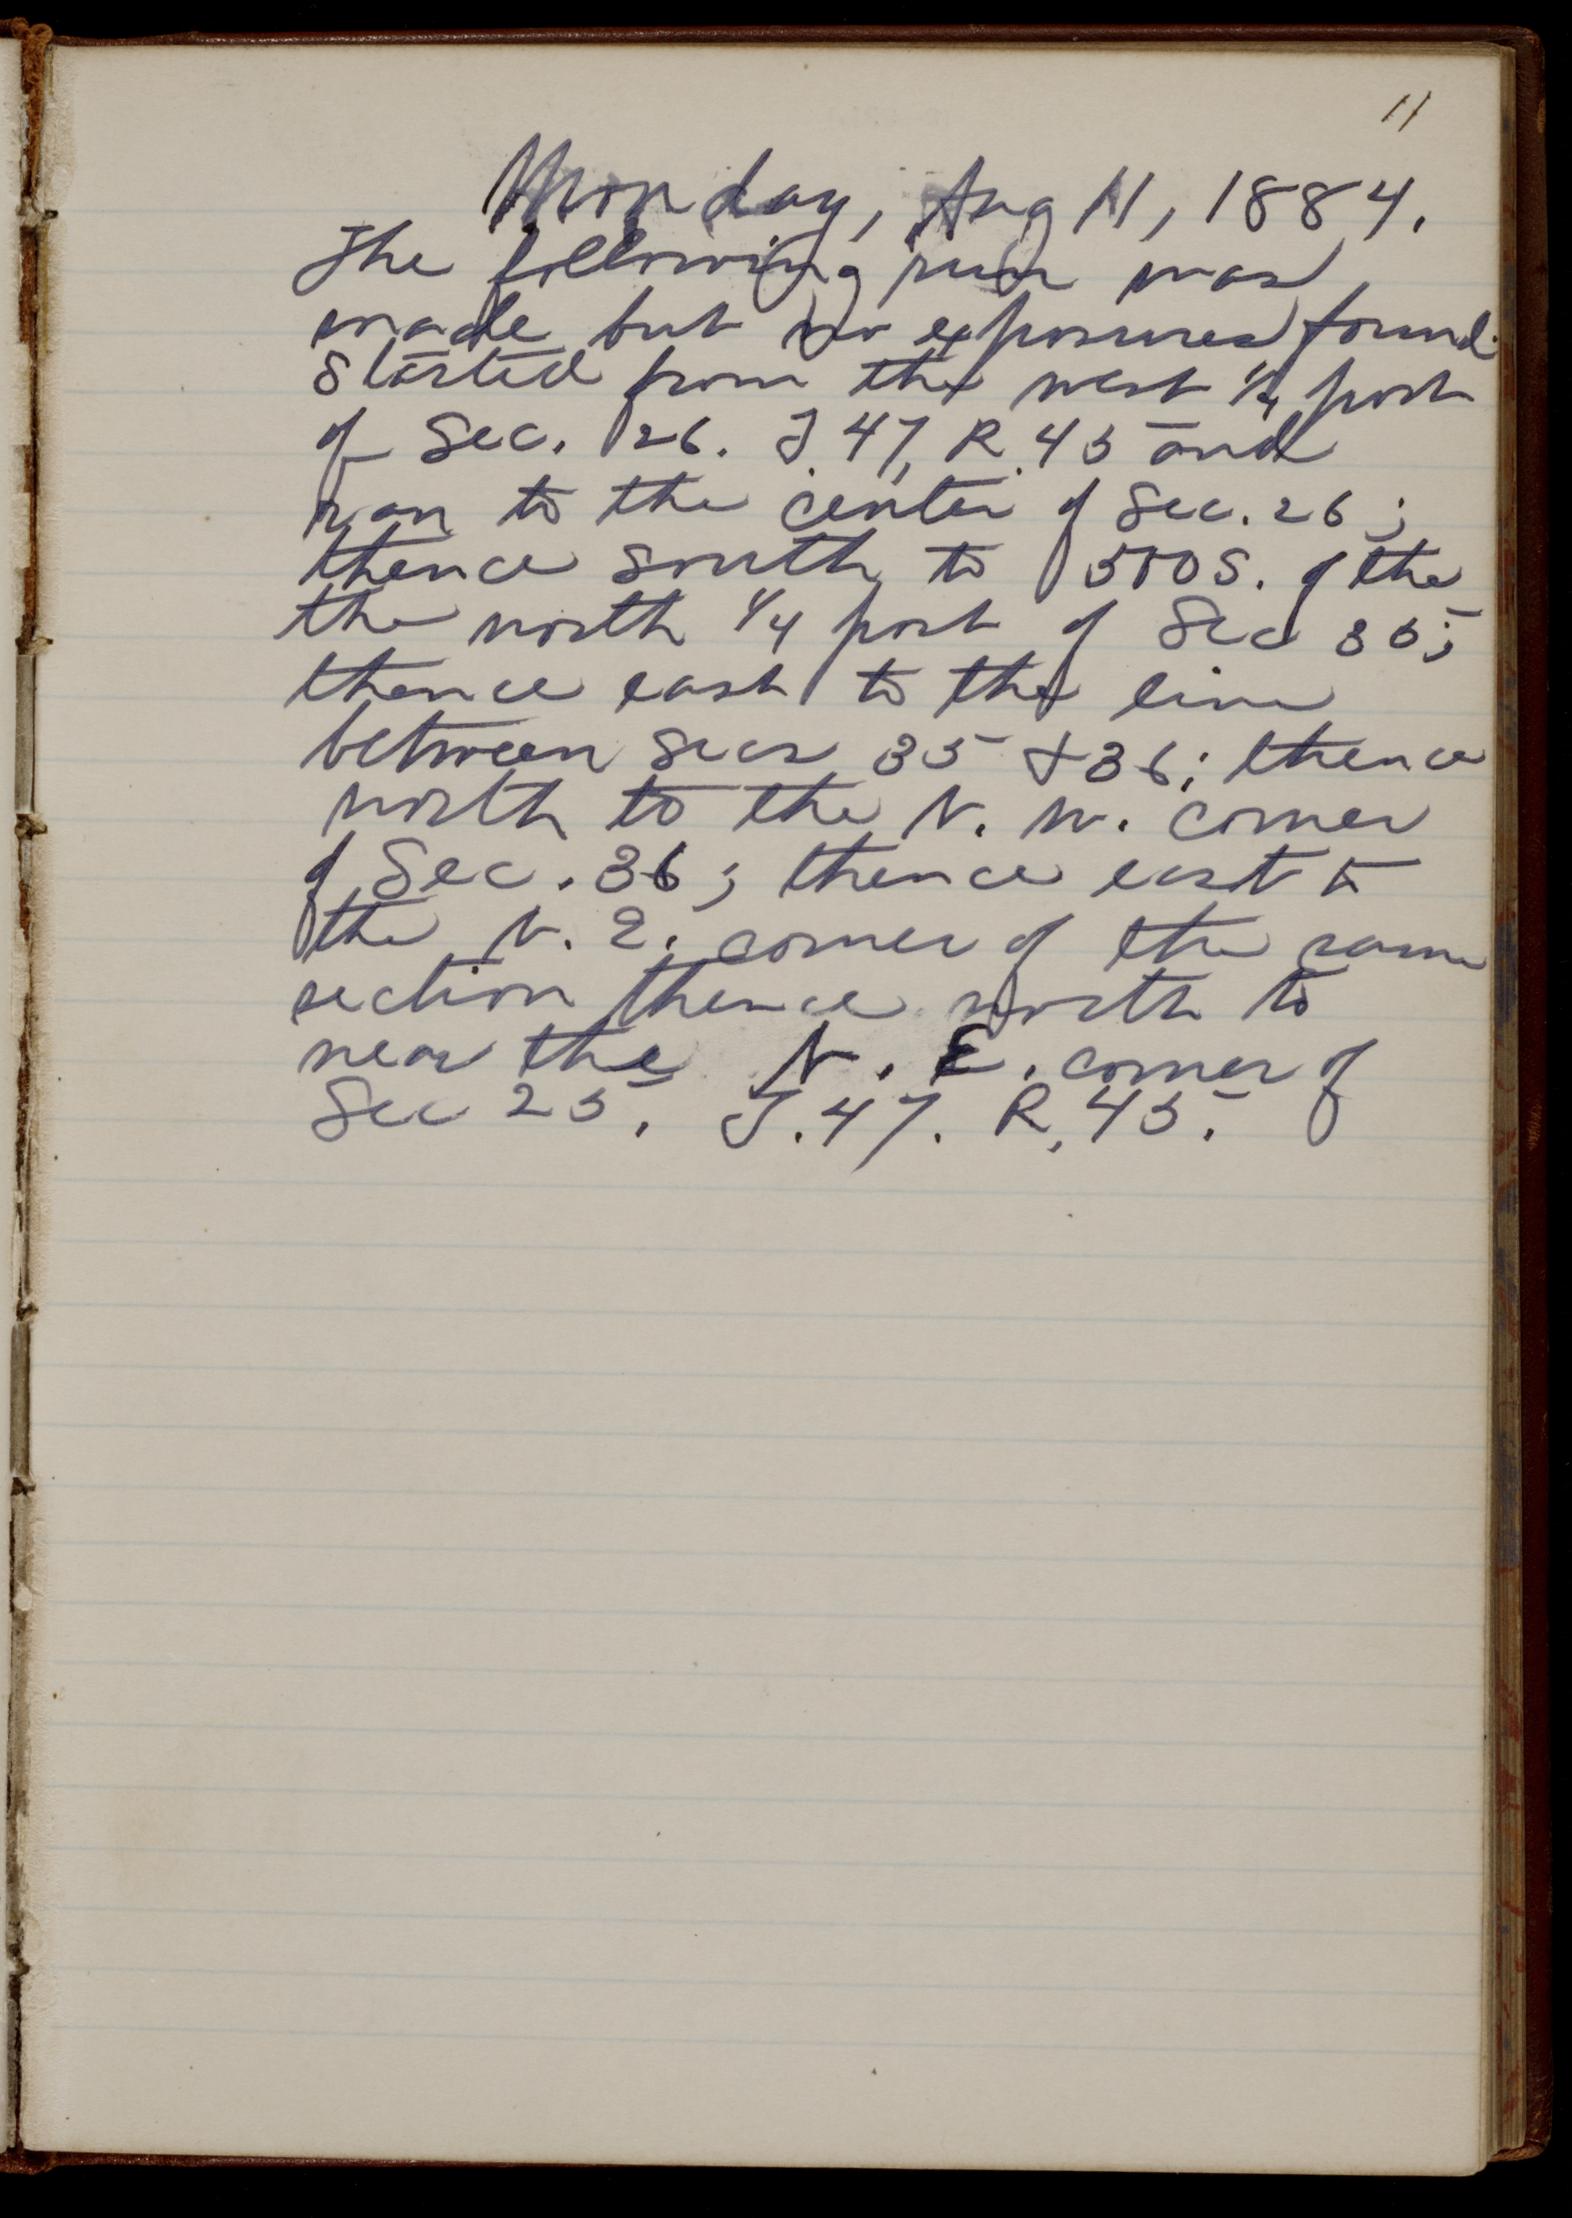 11
Monday, Aug 11, 1884.
The following run was
made but no exposures found.
Started from the west 1/4 post
of Sec. 26. T. 47, R. 45 and
ran to the center of Sec. 26;
thence south to 500 S. of the
the north 1/4 post of Sec 35;
thence east to the line
between secs 35 & 36; thence
north to the N. W. corner
of Sec. 36; thence east to
the N. E. corner of the same
section thence north to
near the N. E. corner of
Sec 25, T. 47. R. 45.